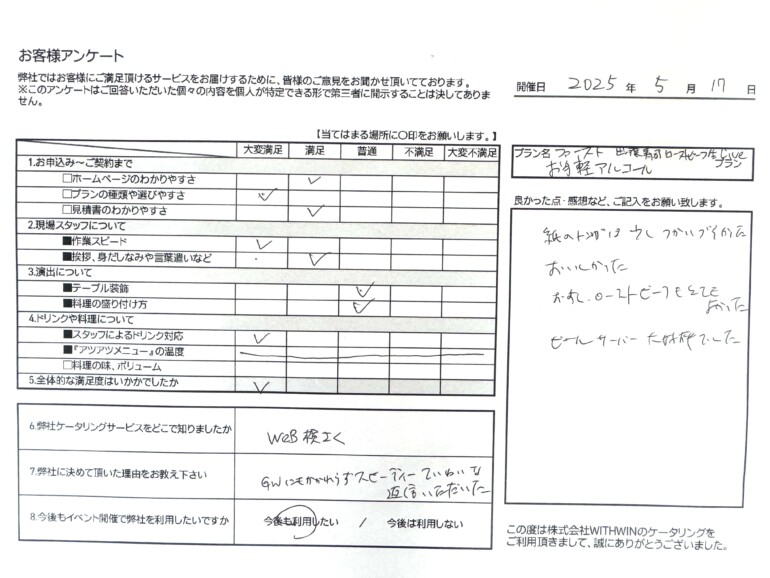 お客様アンケート
弊社ではお客様にご満足頂けるサービスをお届けするために、皆様のご意見をお聞かせ頂いております。
※このアンケートはご回答いただいた個々の内容を個人が特定できる形で第三者に開示することは決してありま
せん。
開催日 2025 年 5 月 17 日
【当てはまる場所に〇印をお願いします。】
大変満足 満足 普通 不満足 大変不満足
1.お申込み～ご契約まで
□ホームページのわかりやすさ
□プランの種類や選びやすさ
□見積書のわかりやすさ
2.現場スタッフについて
■作業スピード
■挨拶、身だしなみや言葉遣いなど
3.演出について
■テーブル装飾
■料理の盛り付け方
4.ドリンクや料理について
■スタッフによるドリンク対応
■『アツアツメニュー』の温度
□料理の味、ボリューム
5.全体的な満足度はいかがでしたか
6.弊社ケータリングサービスをどこで知りましたか
WEB検さく
7.弊社に決めて頂いた理由をお教え下さい
GWにもかかわらずスピーディーていねいな
返信いただいた
8.今後もイベント開催で弊社を利用したいですか
今後も利用したい / 今後は利用しない
プラン名 ローストビーフ Live
プラン
お手軽アルコール
良かった点・感想など、ご記入をお願い致します。
紙のトングは少しつかいづらかった
おいしかった
おすし、ローストビーフもとても
よかった
ビールサーバー大好評でした
この度は株式会社WITHWINのケータリングを
ご利用頂きまして、誠にありがとうございました。